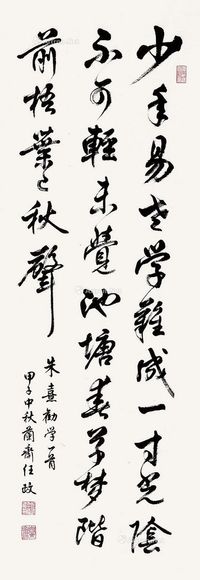 少年易老学難成一寸光陰
不可輕未覺池塘春草梦階
前梧葉已秋聲
朱熹勸学一首
甲子中秋蘭齋任政